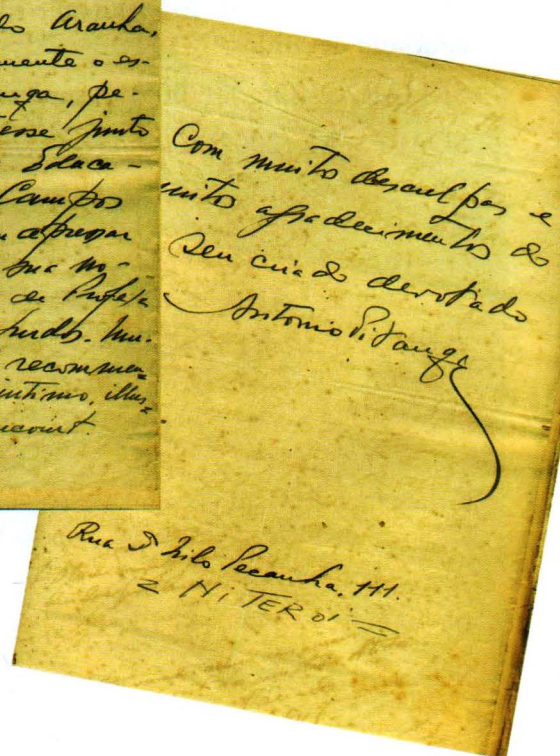 do Aranha,
mente o es-
nça, pe-
esse junto
Educa-
Campos
apressar
sua no-
de Profes
surdos. Mui-
recommen=
intimo, illus=
ncourt.
Com muito desculpas e
muitos agradecimentos do
seu criado devotado
Antonio Pitanga
Rua Dr Nilo Peçanha, 111.
= NiTEROI =